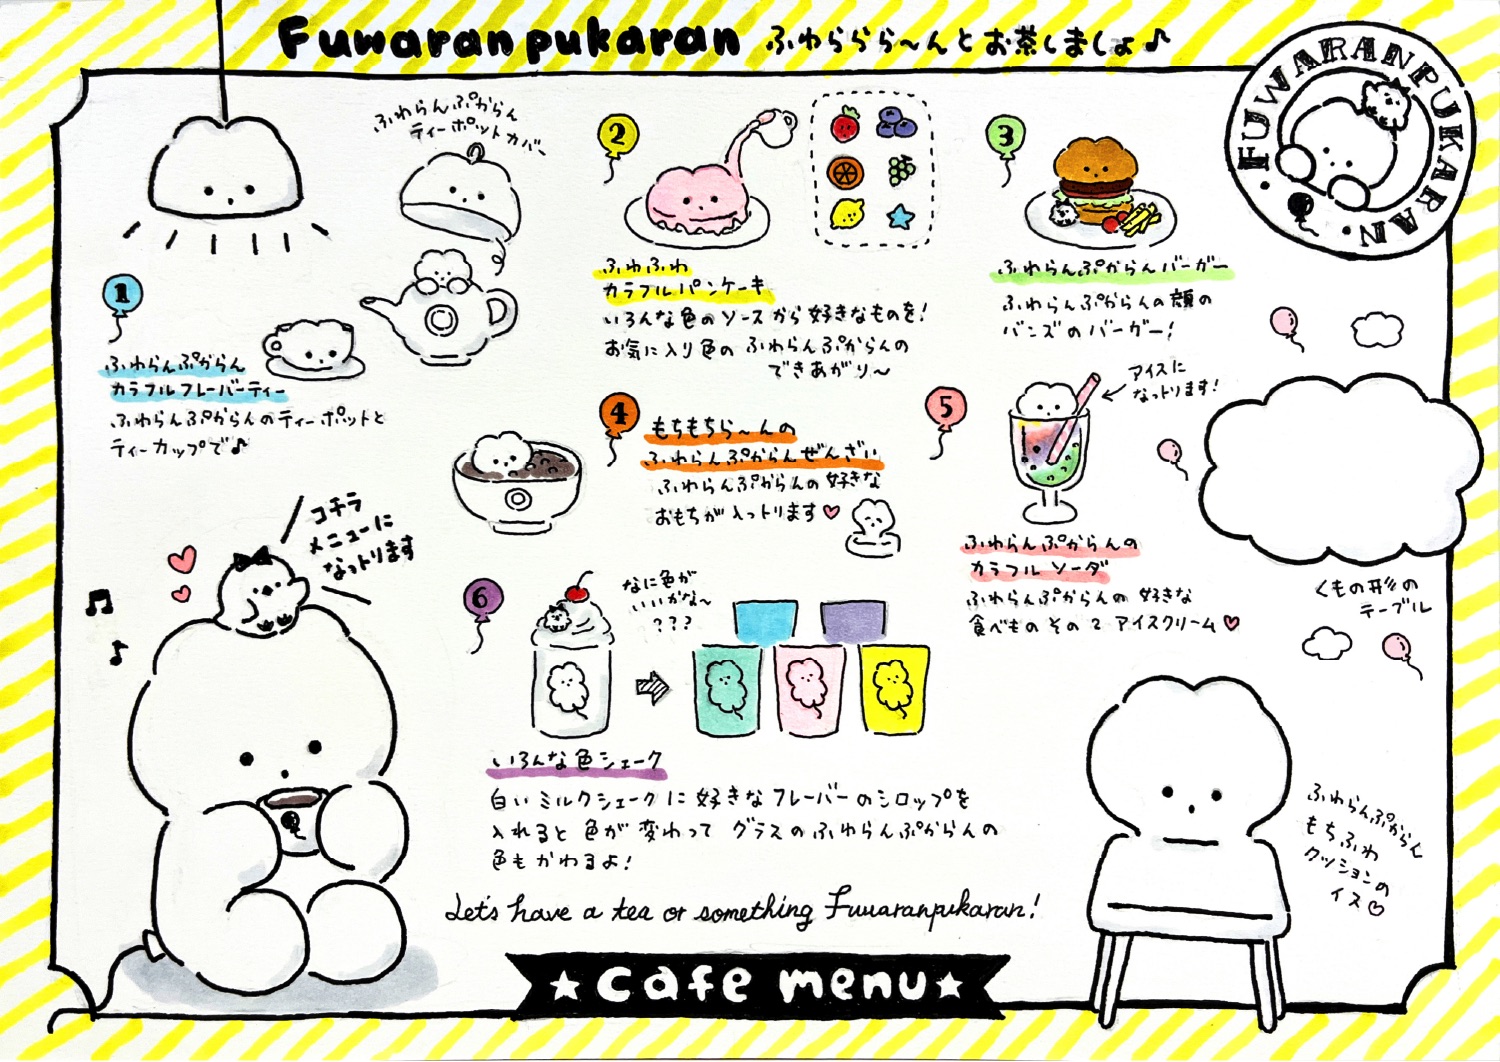 Fuwaranpukaran ふわららら〜んとお茶しましょ♪
・FUWARANPUKARAN・
ふわらんぷからん
ティーポットカバー
1
ふわらんぷからん
カラフルフレーバーティー
ふわらんぷからんのティーポットと
ティーカップで♪
2
ふわふわ
カラフルパンケーキ
いろんな色のソースから好きなものを!
お気に入り色のふわらんぷからんの
できあがり〜
3
ふわらんぷからんバーガー
ふわらんぷからんの顔の
バンズのバーガー!
4
もちもちら〜んの
ふわらんぷからんぜんざい
ふわらんぷからんの好きな
おもちが入っトリます♡
5
アイスに
なっトリます!
ふわらんぷからんの
カラフルソーダ
ふわらんぷからんの好きな
食べものその2アイスクリーム♡
くもの形の
テーブル
コチラ
メニューに
なっトリます
6
なに色が
いいかな〜
???
いろんな色シェーク
白いミルクシェークに好きなフレーバーのシロップを
入れると色が変わってグラスのふわらんぷからんの
色もかわるよ!
ふわらんぷからん
もちふわ
クッションの
イス♡
Let's have a tea or something Fuwaranpukaran!
★cafe menu★